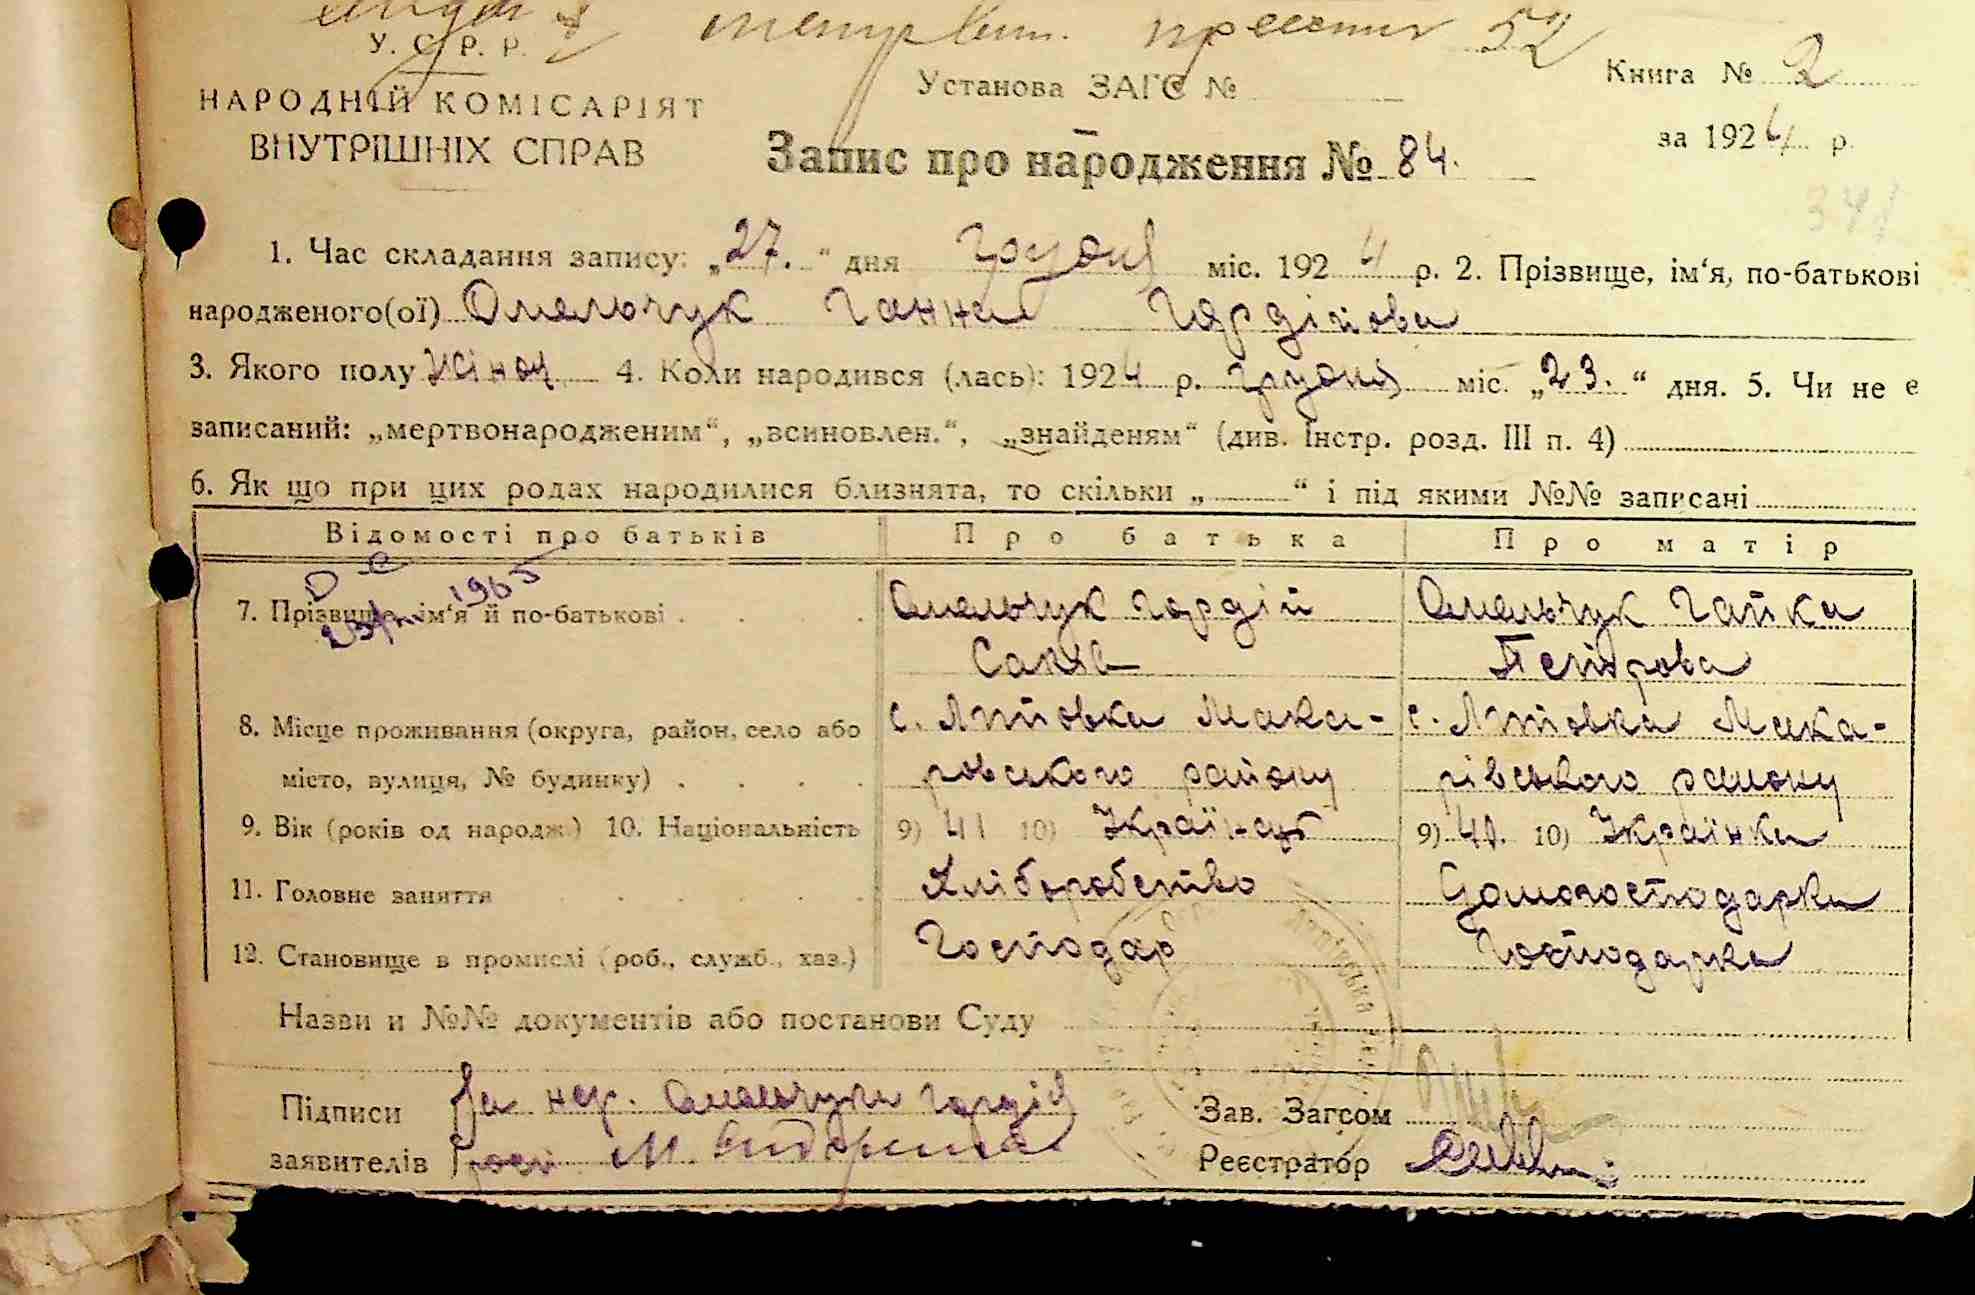 У. С. Р. Р.
НАРОДНІЙ КОМІСАРІЯТ
ВНУТРІШНІХ СПРАВ
Установа ЗАГС №
Книга № 2
за 1924 р.
Запис про народження № 84.
1. Час складання запису: „27.“ дня Грудня міс. 1924 р. 2. Прізвище, ім‘я, по-батькові
народженого(ої) Омельчук Ганна Гордійова
3. Якого полу жіноч 4. Коли народився (лась): 1924 р. грудня міс. „23.“ дня. 5. Чи не є
записаний: „мертвонародженим“, „всиновлен.“, „знайденям“ (див. Інстр. розд. III п. 4)
6. Як що при цих родах народилися близнята, то скільки „ “ і під якими №№ записані
Відомості про батьків Про батька Про матір
1965
7. Прізвище, ім‘я й по-батькові Омельчук Гордій Омельчук Гапка
Петрова
8. Місце проживання (округа, район, село або с. Липовка Мака- с. Липовка Мака-
місто, вулиця, № будинку) ровського району рівського району
9. Вік (років од народж.) 10. Національність 9) 41 10) Українець 9) 40. 10) Українка
11. Головне заняття Хліборобство Домогосподарка
12. Становище в промислі (роб., служб., хаз.) Господар Господарка
Назви й №№ документів або постанови Суду
Підписи За нер. Омельчука Гордія Зав. Загсом
заявителів Реєстратор